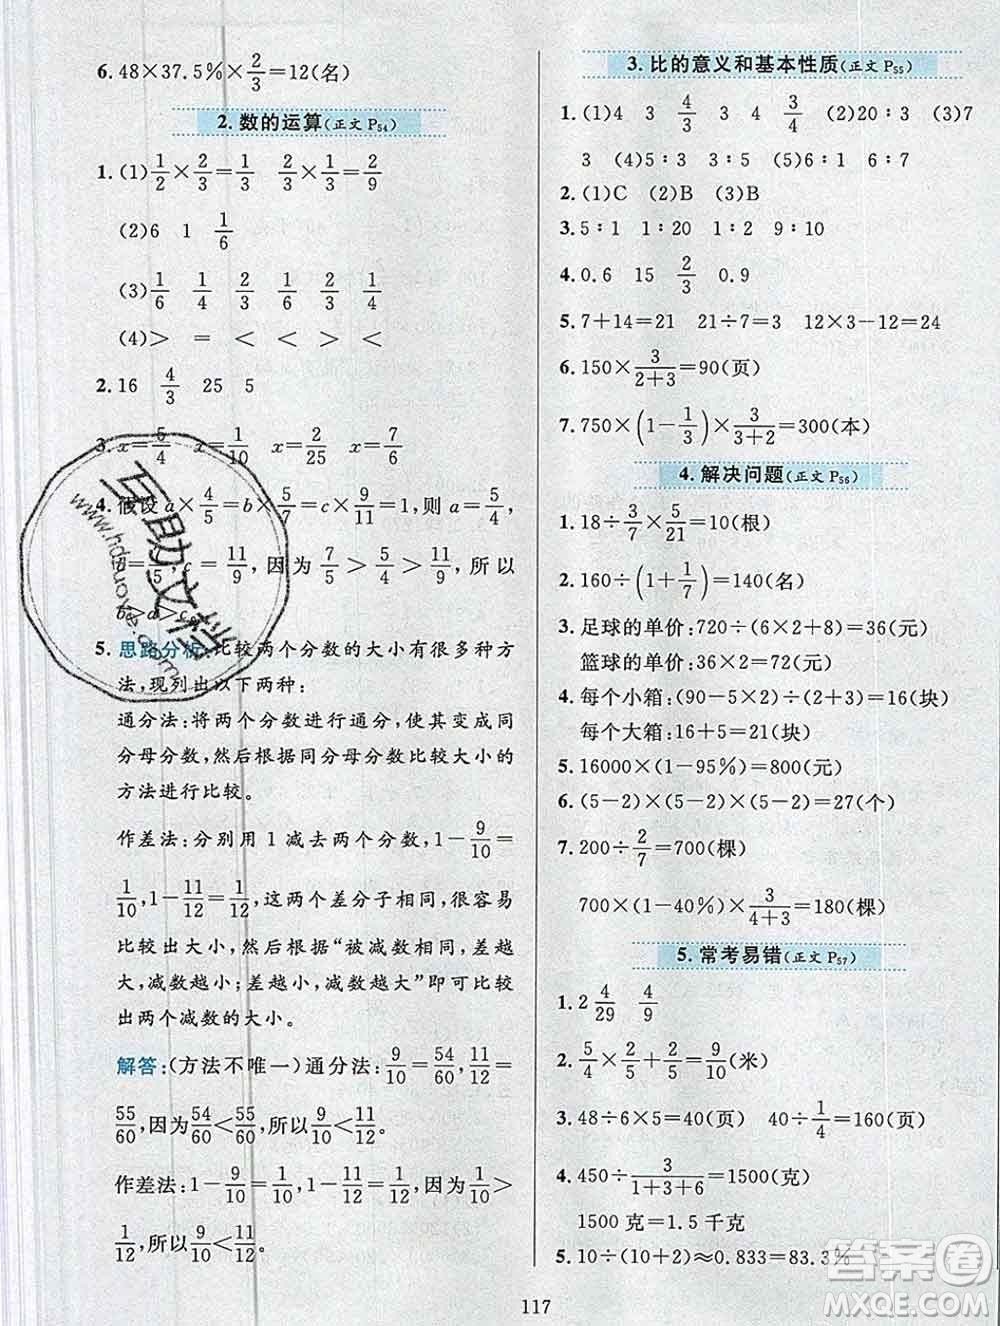 6. 48×37.5%×2/3=12(名)
2. 数的运算(正文 P54)
1. (1)1/2×2/3=1/3　1/3×2/3=2/9
(2)6　1　1/6
(3)1/6　1/4　2/3　1/6　2/3　1/4
(4)>　=　<　<　>　<
2. 16　4/3　25　5
3. x=5/4　x=1/10　x=2/25　x=7/6
4. 假设 a×4/5=b×5/7=c×9/11=1,则 a=5/4,
b=7/5,c=11/9,因为 7/5>5/4>11/9,所以
b>a>c。
5. 思路分析:比较两个分数的大小有很多种方
法,现列出以下两种:
通分法:将两个分数进行通分,使其变成同
分母分数,然后根据同分母分数比较大小的
方法进行比较。
作差法:分别用 1 减去两个分数,1-9/10=
1/10,1-11/12=1/12,这两个差分子相同,很容易
比较出大小,然后根据“被减数相同,差越
大,减数越小;差越小,减数越大”即可比较
出两个减数的大小。
解答:(方法不唯一)通分法:9/10=54/60,11/12=
55/60,因为54/60<55/60,所以9/10<11/12。
作差法:1-9/10=1/10,1-11/12=1/12,因为1/10>
1/12,所以9/10<11/12。
3. 比的意义和基本性质(正文 P55)
1. (1)4　3　4/3　3　4　3/4　(2)20∶3　(3)7
3　(4)5∶3　(5)6∶1　6∶7
2. (1)C　(2)B　(3)B
3. 5∶1　1∶20　1∶2　9∶2
4. 0.6　15　2/3　0.9
5. 7+14=21　21÷7=3　12×3-12=24
6. 150×3/(2+3)=90(页)
7. 750×(1-1/3)×3/(3+2)=300(本)
4. 解决问题(正文 P56)
1. 18÷3/7×5/21=10(根)
2. 160÷(1+1/7)=140(名)
3. 足球的单价:720÷(6×2+8)=36(元)
篮球的单价:36×2=72(元)
4. 每个小箱:(90-5×2)÷(2+3)=16(块)
每个大箱:16+5=21(块)
5. 16000×(1-95%)=800(元)
6. (5-2)×(5-2)×(5-2)=27(个)
7. 200÷2/7=700(棵)
700×(1-40%)×3/(4+3)=180(棵)
5. 常考易错(正文 P57)
1. 2 4/29　4/9
2. 5/4×2/5+2/5=9/10(米)
3. 48÷6×5=40(页)　40÷1/4=160(页)
4. 450÷3/(1+3+6)=1500(克)
1500 克=1.5 千克
5. 10÷(10+2)≈0.833=83.3%
117
互助文档
www.hdzuoye.com
答案圈
MXQE.COM